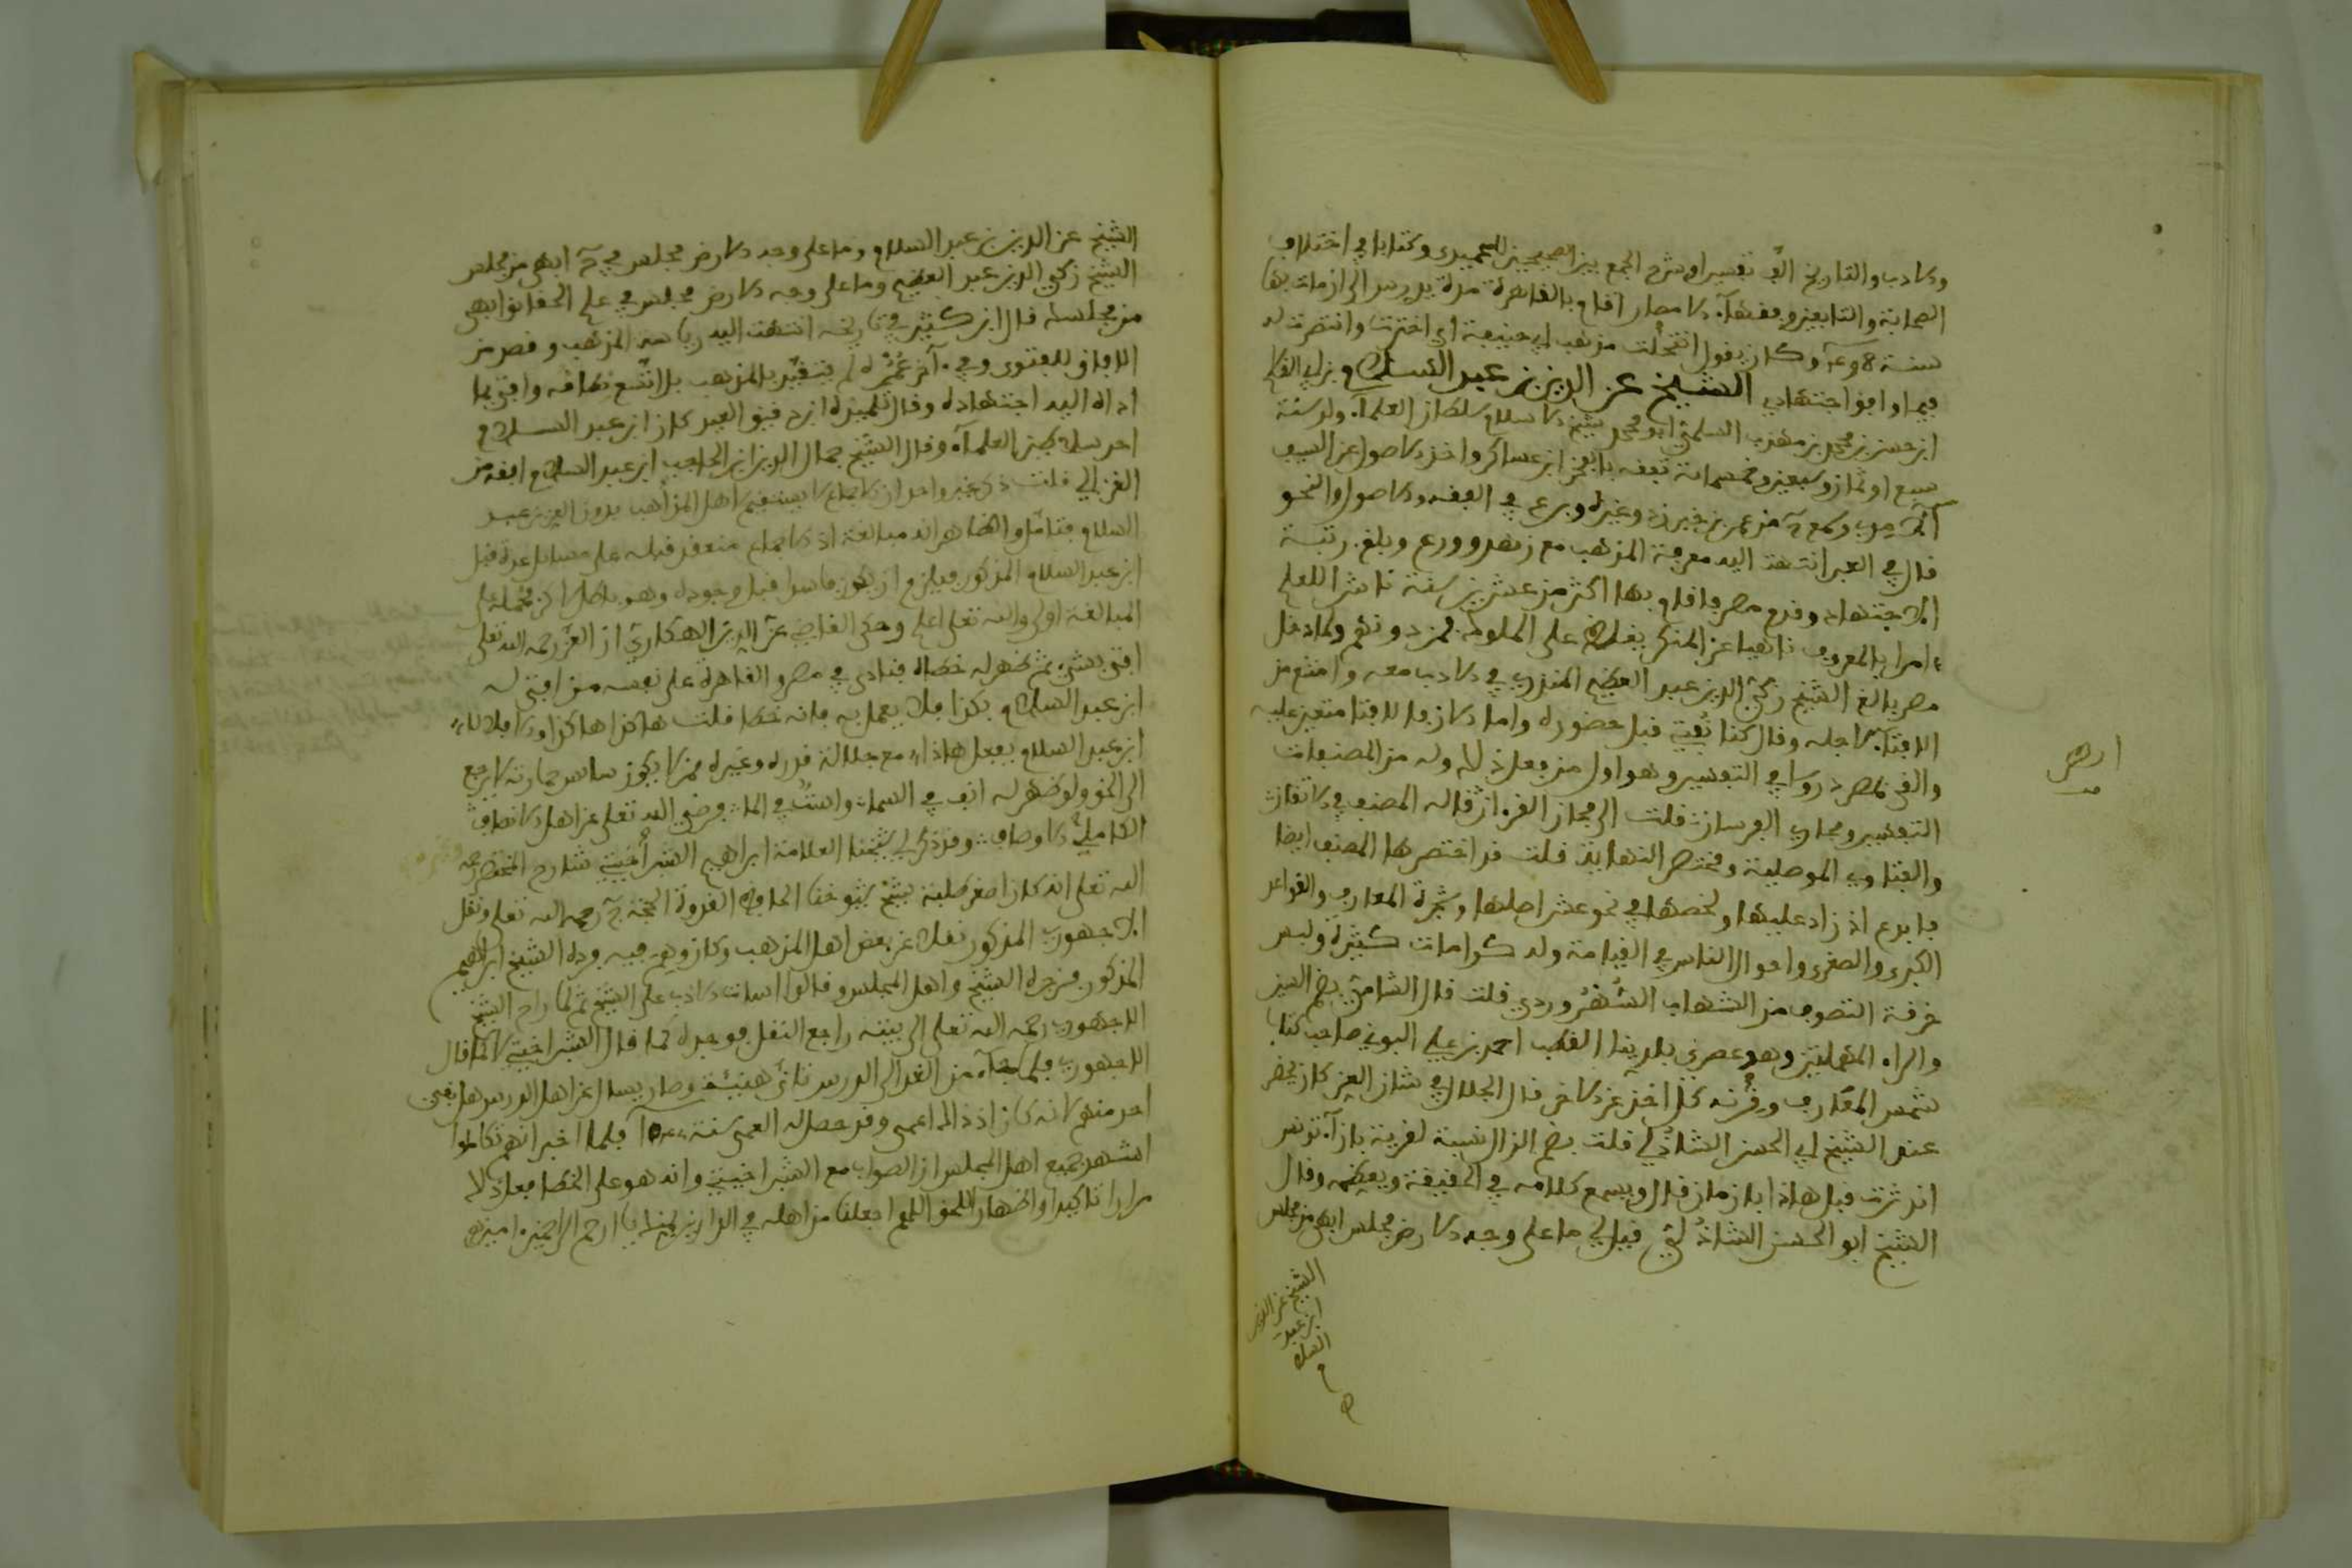 والادب والتاريخ الف تفسيرا وشرح الجمع بين الصحيحين للحميدي وكتابا في اختلاف
الصحابة والتابعين وفقهاء الامصار اقام بالقاهرة مدة يدرس الى ان مات بها
سنة وكان يقول انتحلت مذهب ابي حنيفة اي اخترت وانتصرت له
فيما وافق اجتهادي الشيخ عز الدين بن عبد السلام بن ابي القاسم
ابن حسن بن محمد بن مهذب السلمي ابو محمد شيخ الاسلام سلطان العلماء ولد سنة
سبع او ثمان وسبعين وخمسمائة تفقه بالفخر ابن عساكر واخذ الاصول عن السيف
الامدي وسمع من عمر بن طبرزد وغيره وبرع في الفقه والاصول والنحو
قال في العبر انتهت اليه معرفة المذهب مع زهد وورع وبلغ رتبة
الاجتهاد وقدم مصر فاقام بها اكثر من عشرين سنة ناشرا للعلم
امرا بالمعروف ناهيا عن المنكر يغلظ على الملوك فمن دونهم ولما دخل
مصر بالغ الشيخ زكي الدين عبد العظيم المنذري في الادب معه وامتنع من
الافتاء لاجله وقال كنا نفتي قبل حضوره واما الان فالافتا متعين عليه
والقى بمصر دروسا في التفسير وهو اول من فعل ذلك وله من المصنفات
التفسير ومجاز الفرسان قلت الى مجاز القرءان قاله المصنف في الاتقان
والفتاوي الموصلية ومختصر النهاية قلت قد اختصرها المصنف ايضا
فابدع اذ زاد عليها ولخصها في نحو عشر اصلها وشجرة المعارف والقواعد
الكبرى والصغرى واحوال الناس في القيامة وله كرامات كثيرة ولبس
خرقة التصوف من الشهاب السهروردي قلت قال الشامي بضم السين
والراء المهملتين وهو عصري بلدينا القطب احمد بن علي البوني صاحب كتاب
شمس المعارف وقرنه كل اخذ عن الاخر قال الجلال في شان العز كان يحضر
عند الشيخ ابي الحسن الشاذلي قلت بضم الذال نسبة لقرية بازاء تونس
اندثرت قبل هاذا بازمان قال ويسمع كلامه في الحقيقة ويعظمه وقال
الشيخ ابو الحسن الشاذلي قيل لي ما على وجه الارض مجلس ابهى من مجلس
الشيخ عز الدين
ابن عبد
السلام
الشيخ عز الدين بن عبد السلام وما على وجه الارض مجلس في ابهى من مجلس
الشيخ زكي الدين عبد العظيم وما على وجه الارض مجلس في علم الحقائق ابهى
من مجلسك قال ابن كثير في تاريخه انتهت اليه رياسة المذهب وقصد من
الافاق للفتوى وفي آخر عمره لم يتقيد بالمذهب بل اتسع نطاقه وافتى بما
اداه اليه اجتهاده وقال تلميذه ابن دقيق العيد كان ابن عبد السلام
احد سلاطين العلماء وقال الشيخ جمال الدين ابن الحاجب ابن عبد السلام افقه من
الغزالي قلت ذكر غير واحد ان الاجماع لا يستقيم لاهل المذاهب بدون العز بن عبد
السلام فتامل والظاهر انه مبالغة اذ الاجماع منعقد قبله على مسائل عدة قبل
ابن عبد السلام المذكور فيلزم ان يكون فاسدا قبل وجوده وهو باطل لاكن حمله على
المبالغة اولى والله تعلى اعلم وحكى القاضي عز الدين الهكاري ان العز رحمه الله تعلى
افتى بشيء ثم ظهر له خطاه فنادى في مصر والقاهرة على نفسه من افتى له
ابن عبد السلام بكذا فلا يعمل به فانه خطا قلت هاكذا هاكذا والا فلا لا
ابن عبد السلام يفعل هاذا مع جلالة قدره وغيره ممن لا يكون ساس حمارته لا يرجع
الى الحق ولو ظهر له انف في السماء واست في الماء فرضي الله تعلى عن اهل الانصاف
الكاملي الاوصاف وقد ذكر لي شيخنا العلامة ابراهيم الشبراخيتي شارح المختصر رحمه
الله تعلى انه كان اصغر طلبة شيخ شيوخنا الحافظ القدوة الحجة رحمه الله تعلى ونقل
الاجهوري المذكور نقلا عن بعض اهل المذهب وكان وهم فيه فرده الشيخ ابراهيم
المذكور فزجره الشيخ واهل المجلس وقالوا اسات الادب على الشيخ ثم لما راح الشيخ
الاجهوري رحمه الله تعلى الى بيته راجع النقل فوجده كما قال الشبراخيتي لا كما قال
الاجهوري فلما جاء من الغد الى الدرس تانى هنيئة وصار يسال عن اهل الدرس هل بقي
احد منهم لانه كان اذ ذاك اعمى وقد حصل له العمى سنة فلما اخبر انهم تكاملوا
اشهد جميع اهل المجلس ان الصواب مع الشبراخيتي وانه هو على الخطا فعل ذلك
مرارا تاكيدا واظهارا للحق اللهم اجعلنا من اهله في الدارين بمنك يا ارحم الراحمين امين